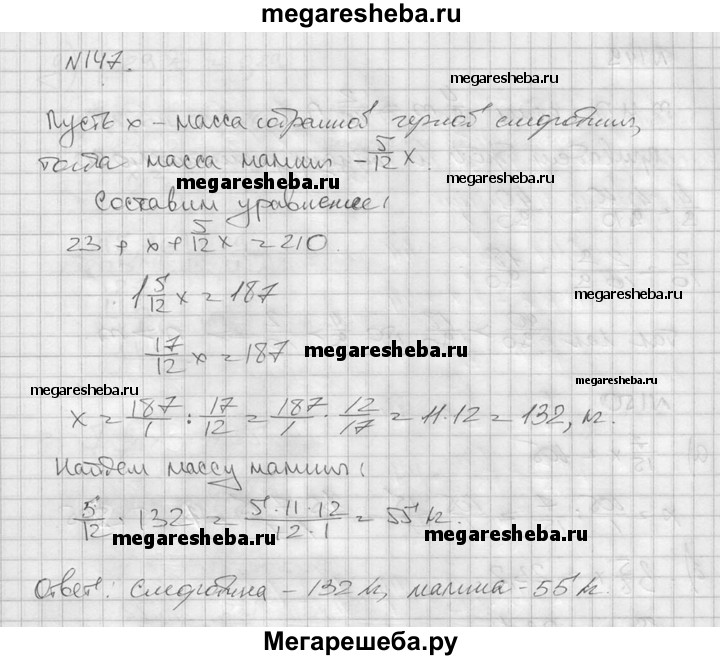 megaresheba.ru
№147.
megaresheba.ru
Пусть x – масса собранной черной смородины,
тогда масса малины – 5/12 x.
megaresheba.ru
megaresheba.ru
Составим уравнение:
23 + x + 5/12 x = 210.
1 5/12 x = 187
megaresheba.ru
17/12 x = 187
megaresheba.ru
megaresheba.ru
megaresheba.ru
x = 187/1 : 17/12 = 187/1 · 12/17 = 11·12 = 132, кг.
Найдем массу малины:
5/12 · 132 = 5·11·12/12·1 = 55 кг.
megaresheba.ru
megaresheba.ru
Ответ: смородина – 132 кг, малина – 55 кг.
Мегарешеба.ру